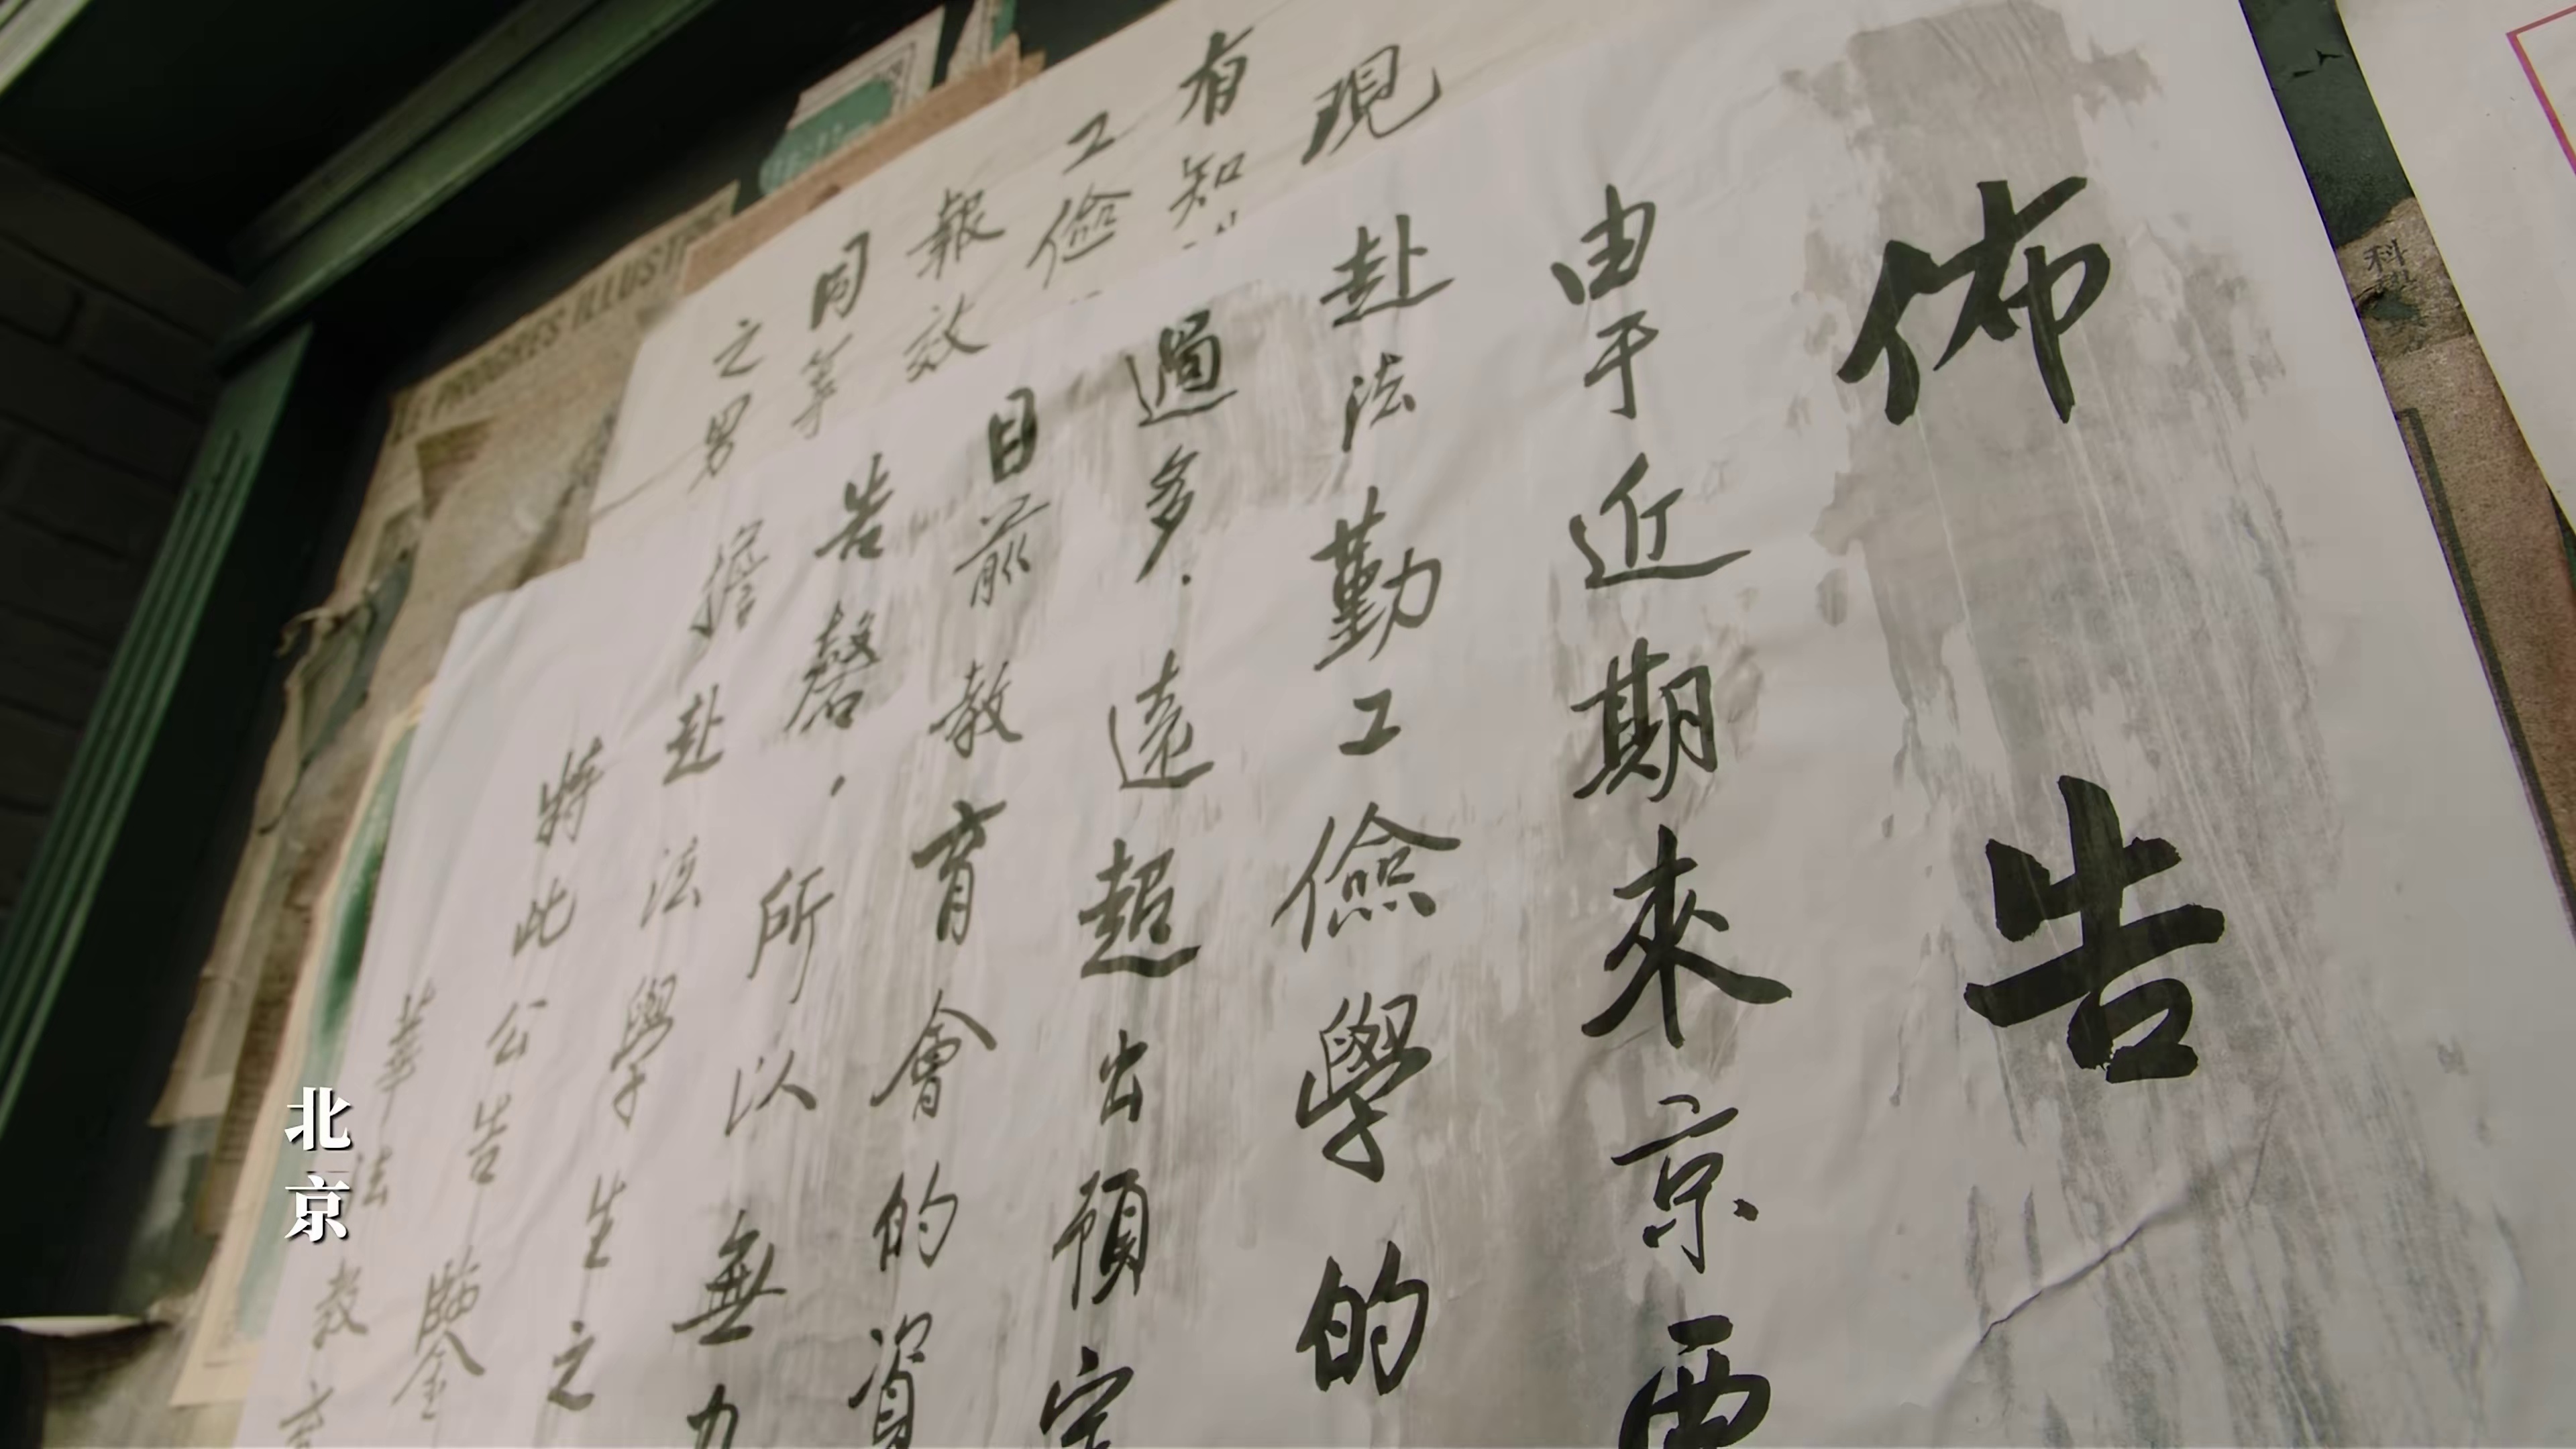 佈告
由于近期來京要
赴法勤工儉學的
過多.遠超出預定
目前教育會的資
告罄,所以無力
擔赴法學生之
特此公告鑒
華法教育
現
有知
工儉
報效
同等
之男
LE PROGRES ILLUSTRE
北京